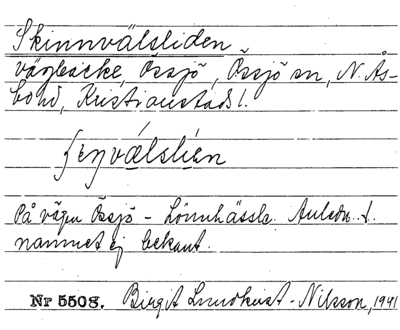 Skinnvälsliden
vägbacke, Össjö, Össjö sn, N. Ås-
bo hd, Kristianstads l.
ʃeɲvälslíən
På vägen Össjö - Lönnhässle. Anledn. t.
namnet ej bekant.
Nr 5508. Birgit Lundkvist-Nilsson, 1941